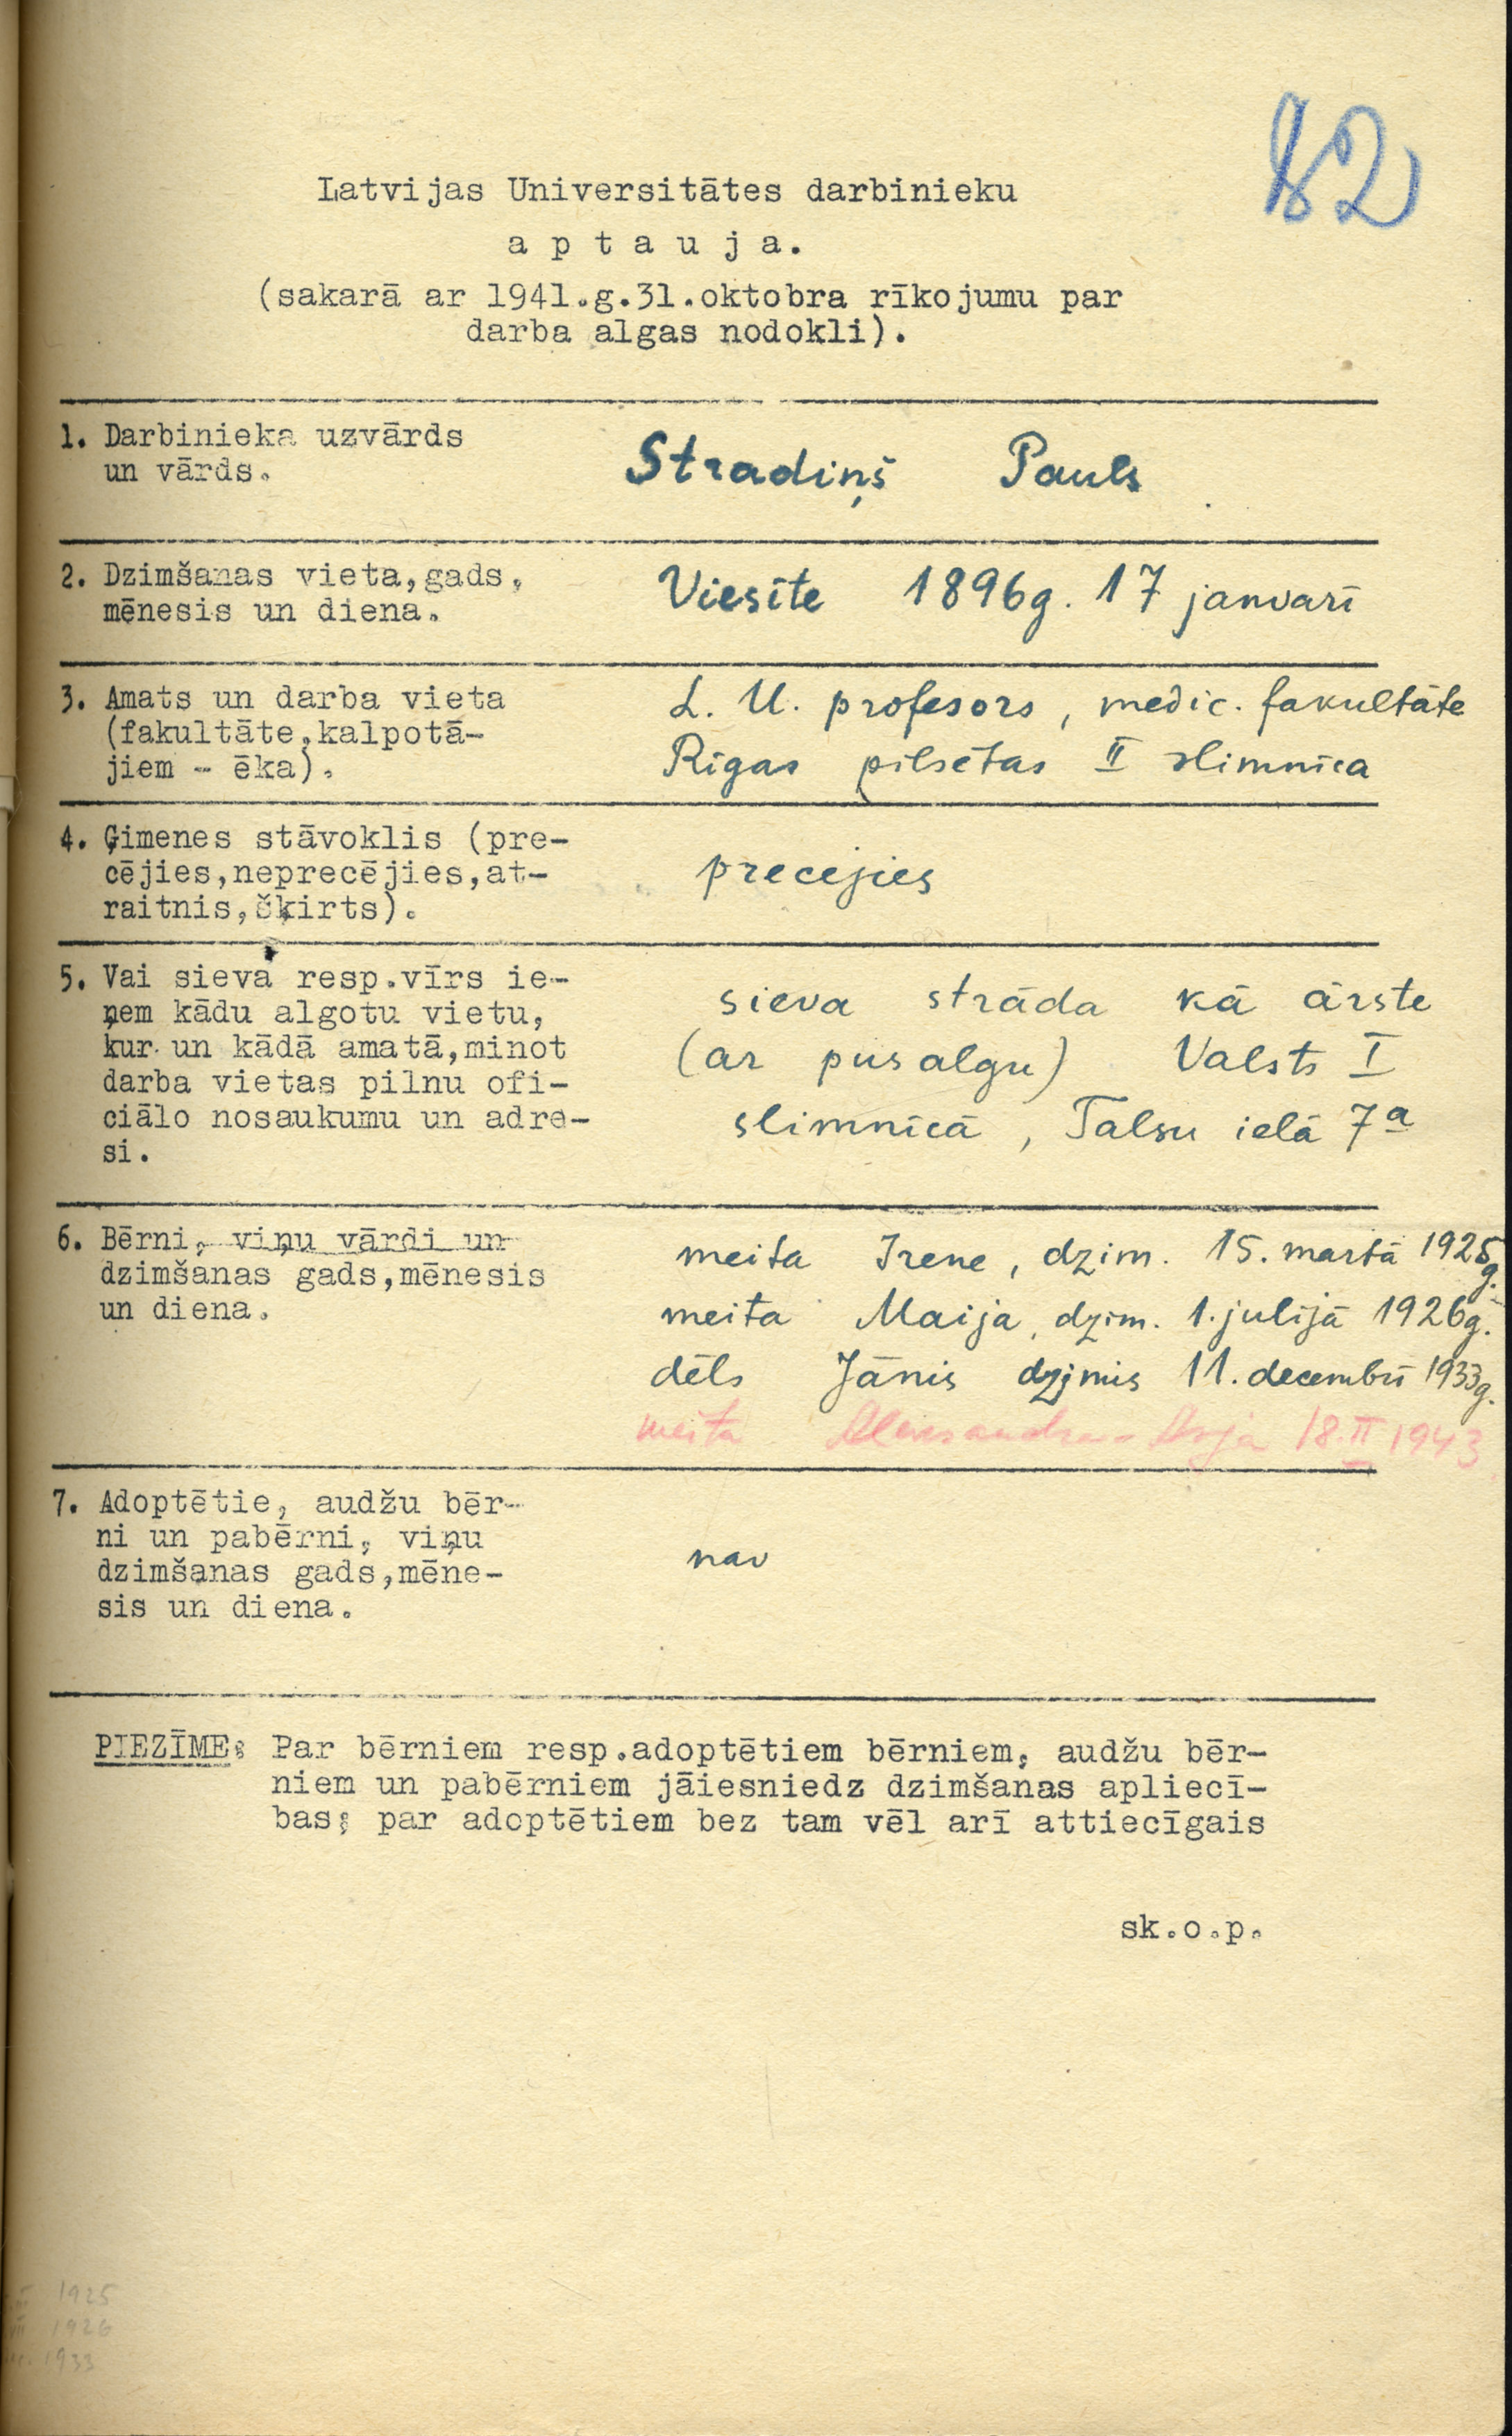 82
Latvijas Universitātes darbinieku
a p t a u j a.
(sakarā ar 1941.g.31.oktobra rīkojumu par
darba algas nodokli).
1. Darbinieka uzvārds
un vārds.
Stradiņš Pauls
2. Dzimšanas vieta,gads,
mēnesis un diena.
Viesīte 1896g. 17 janvarī
3. Amats un darba vieta
(fakultāte,kalpotā-
jiem - ēka).
L. U. profesors, medic. fakultāte
Rīgas pilsētas II slimnīca
4. Ģimenes stāvoklis (pre-
cējies,neprecējies,at-
raitnis,šķirts).
precejies
5. Vai sieva resp.vīrs ie-
ņem kādu algotu vietu,
kur un kādā amatā,minot
darba vietas pilnu ofi-
ciālo nosaukumu un adre-
si.
sieva strāda kā ārste
(ar pus algu) Valsts I
slimnīcā, Talsu ielā 7a
6. Bērni, viņu vārdi un
dzimšanas gads,mēnesis
un diena.
meita Irene, dzim. 15. martā 1925g.
meita Maija, dzim. 1. julijā 1926g.
dēls Jānis dzimis 11. decembrī 1933g.
meita Aleksandra - Asja 18.II 1943
7. Adoptētie, audžu bēr-
ni un pabērni, viņu
dzimšanas gads,mēne-
sis un diena.
nav
PIEZĪME: Par bērniem resp.adoptētiem bērniem, audžu bēr-
niem un pabērniem jāiesniedz dzimšanas apliecī-
bas; par adoptētiem bez tam vēl arī attiecīgais
sk.o.p.
1925
1926
1933